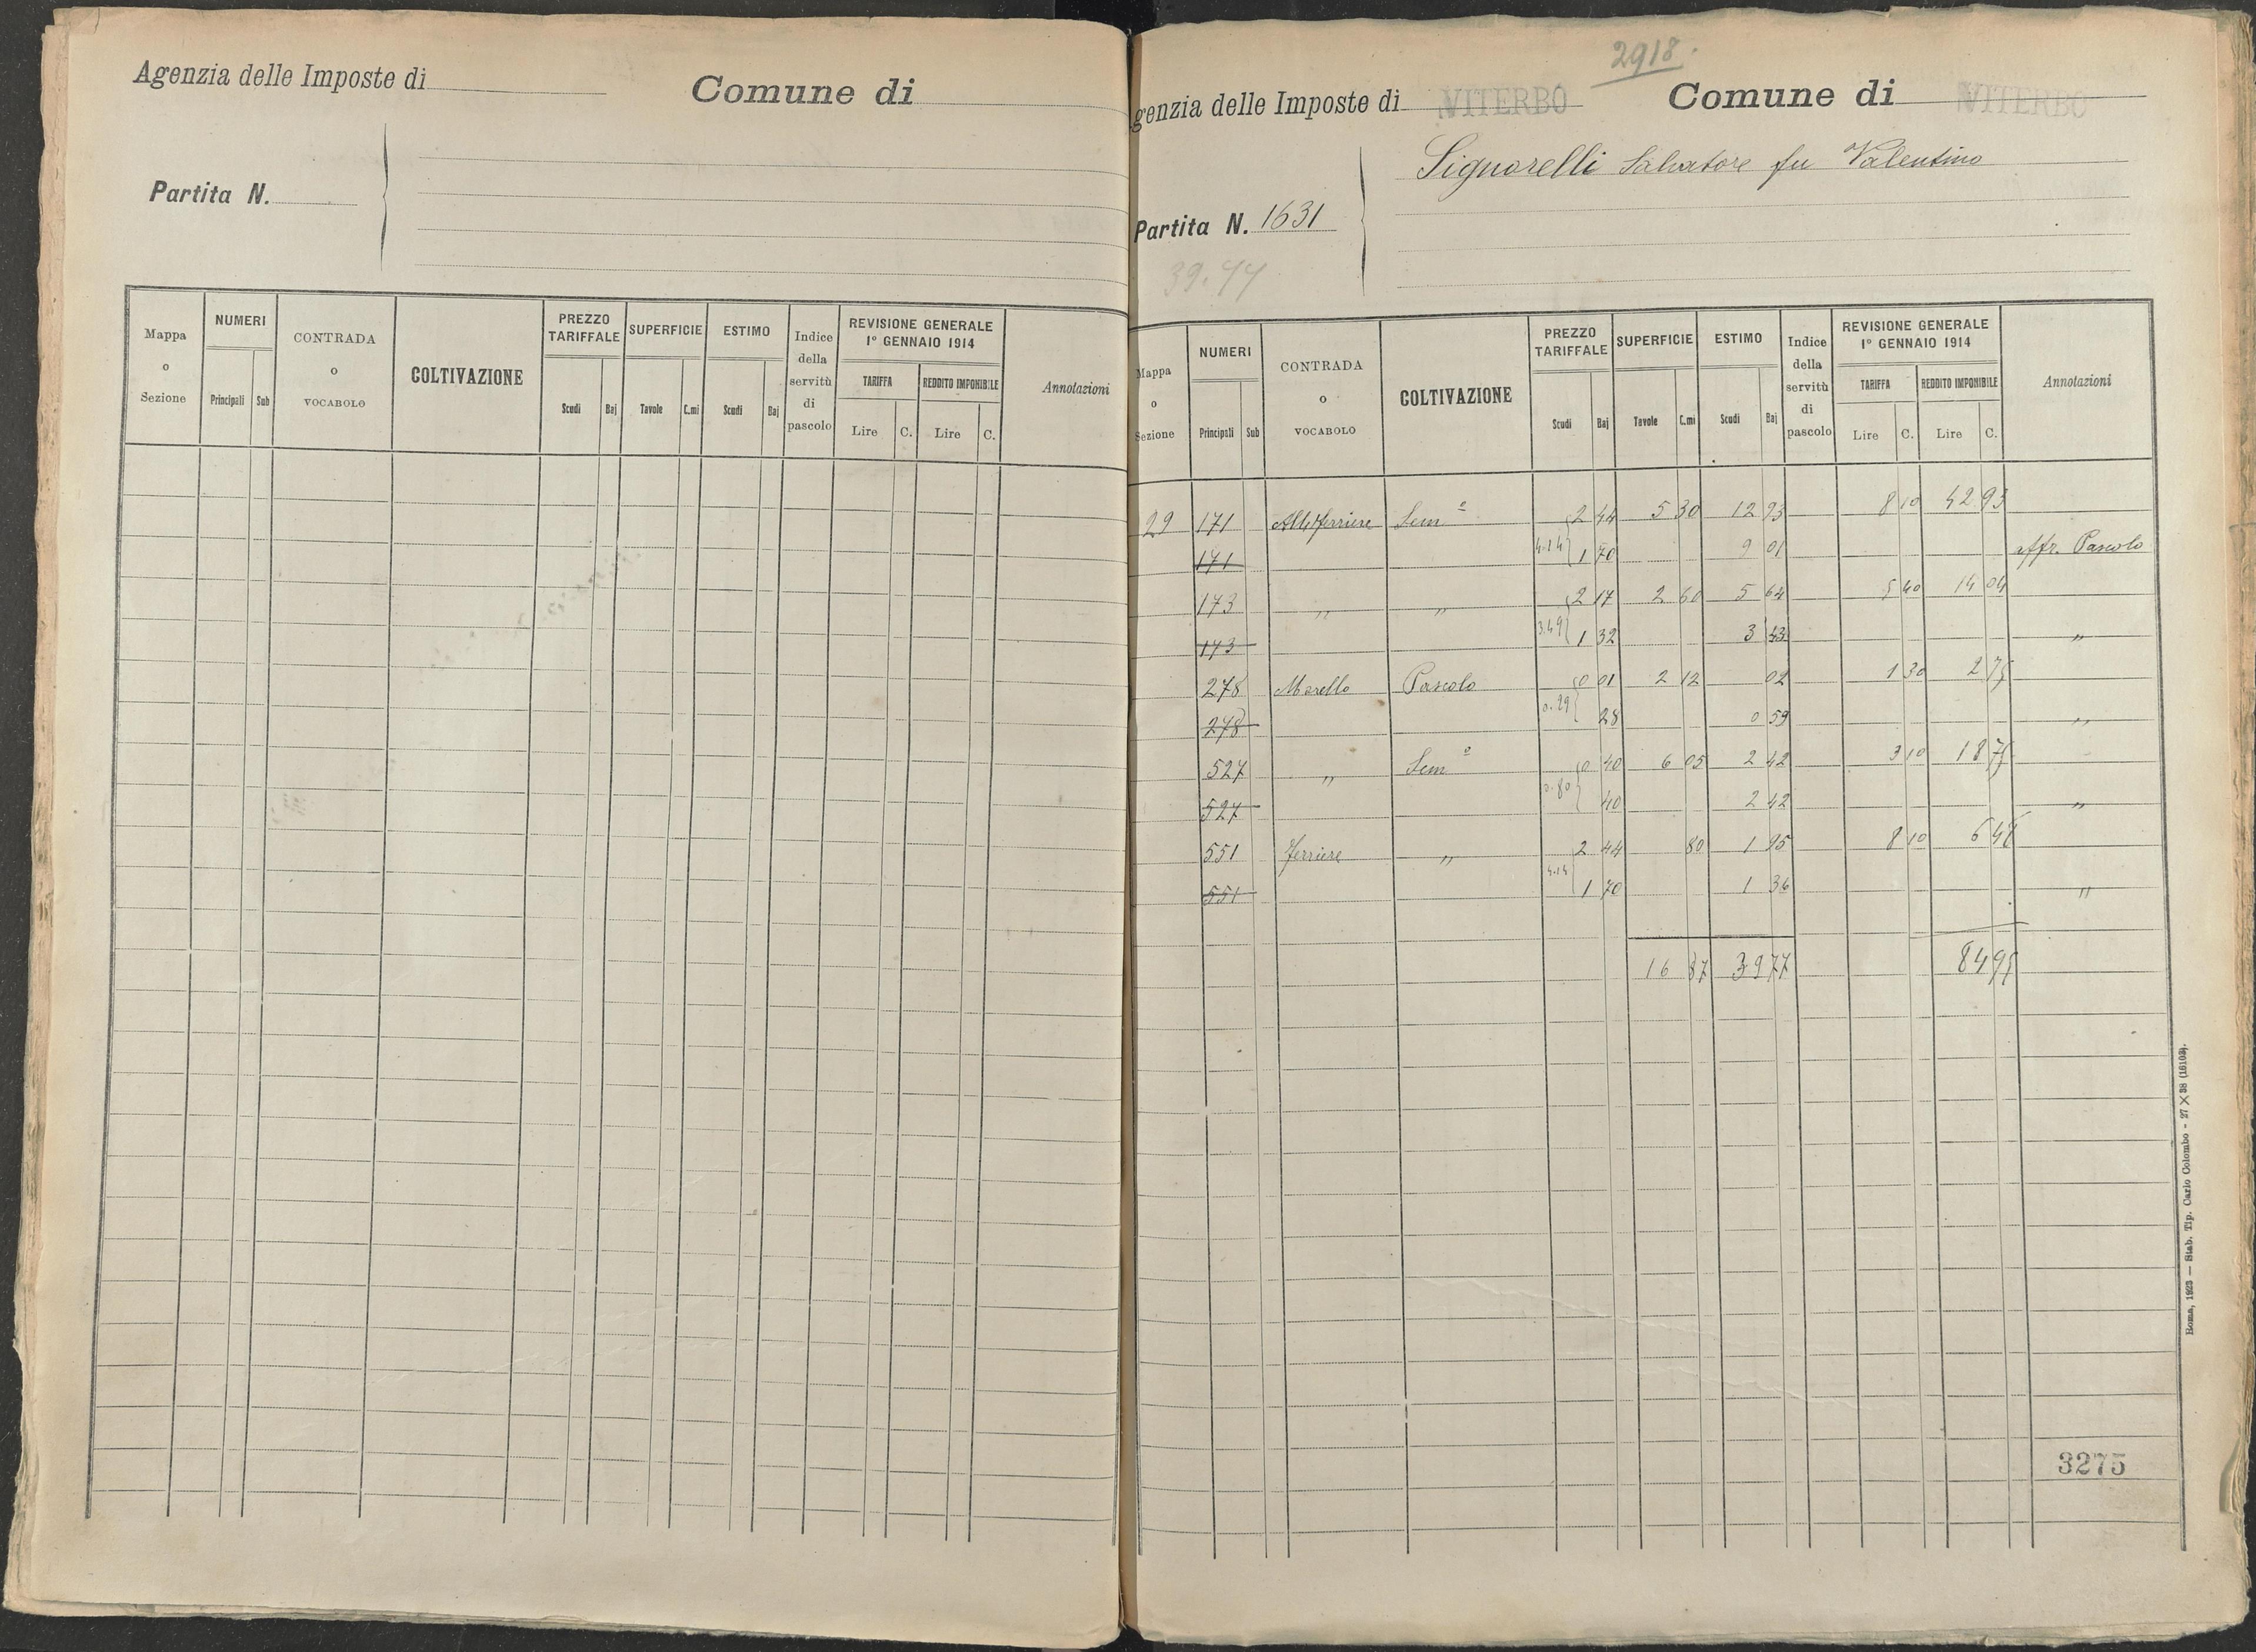 Agenzia delle Imposte di
Comune di
Partita N.
Mappa o Sezione
NUMERI
Principali Sub
CONTRADA o VOCABOLO
COLTIVAZIONE
PREZZO TARIFFALE
Scudi Baj
SUPERFICIE
Tavole C.mi
ESTIMO
Scudi Baj
Indice della servitù di pascolo
REVISIONE GENERALE 1° GENNAIO 1914
TARIFFA
Lire C.
REDDITO IMPONIBILE
Lire C.
Annotazioni
2918.
genzia delle Imposte di VITERBO
Comune di VITERBO
Signorelli Salvatore fu Valentino
Partita N. 1631
39.77
Mappa o Sezione
NUMERI
Principali Sub
CONTRADA o VOCABOLO
COLTIVAZIONE
PREZZO TARIFFALE
Scudi Baj
SUPERFICIE
Tavole C.mi
ESTIMO
Scudi Baj
Indice della servitù di pascolo
REVISIONE GENERALE 1° GENNAIO 1914
TARIFFA
Lire C.
REDDITO IMPONIBILE
Lire C.
Annotazioni
29 171 Sem° 2 44 5 30 12 93 8 10 42 93
171 4.14 1 70 9 01 Affr. Pascolo
173 " " 2 17 2 60 5 64 5 40 14 04
173 3.49 1 32 3 43 "
278 Morello Pascolo 0 01 2 12 02 1 30 2 75
278 0.29 28 0 59 "
527 " Sem° 0 40 6 05 2 42 3 10 18 75
527 0.80 40 2 42 "
551 Ferriere " 2 44 80 1 95 8 10 6 48
551 4.14 1 70 1 36 "
16 87 39 77 84 95
3275
Roma, 1923 — Stab. Tip. Carlo Colombo - 27 X 38 (16103).